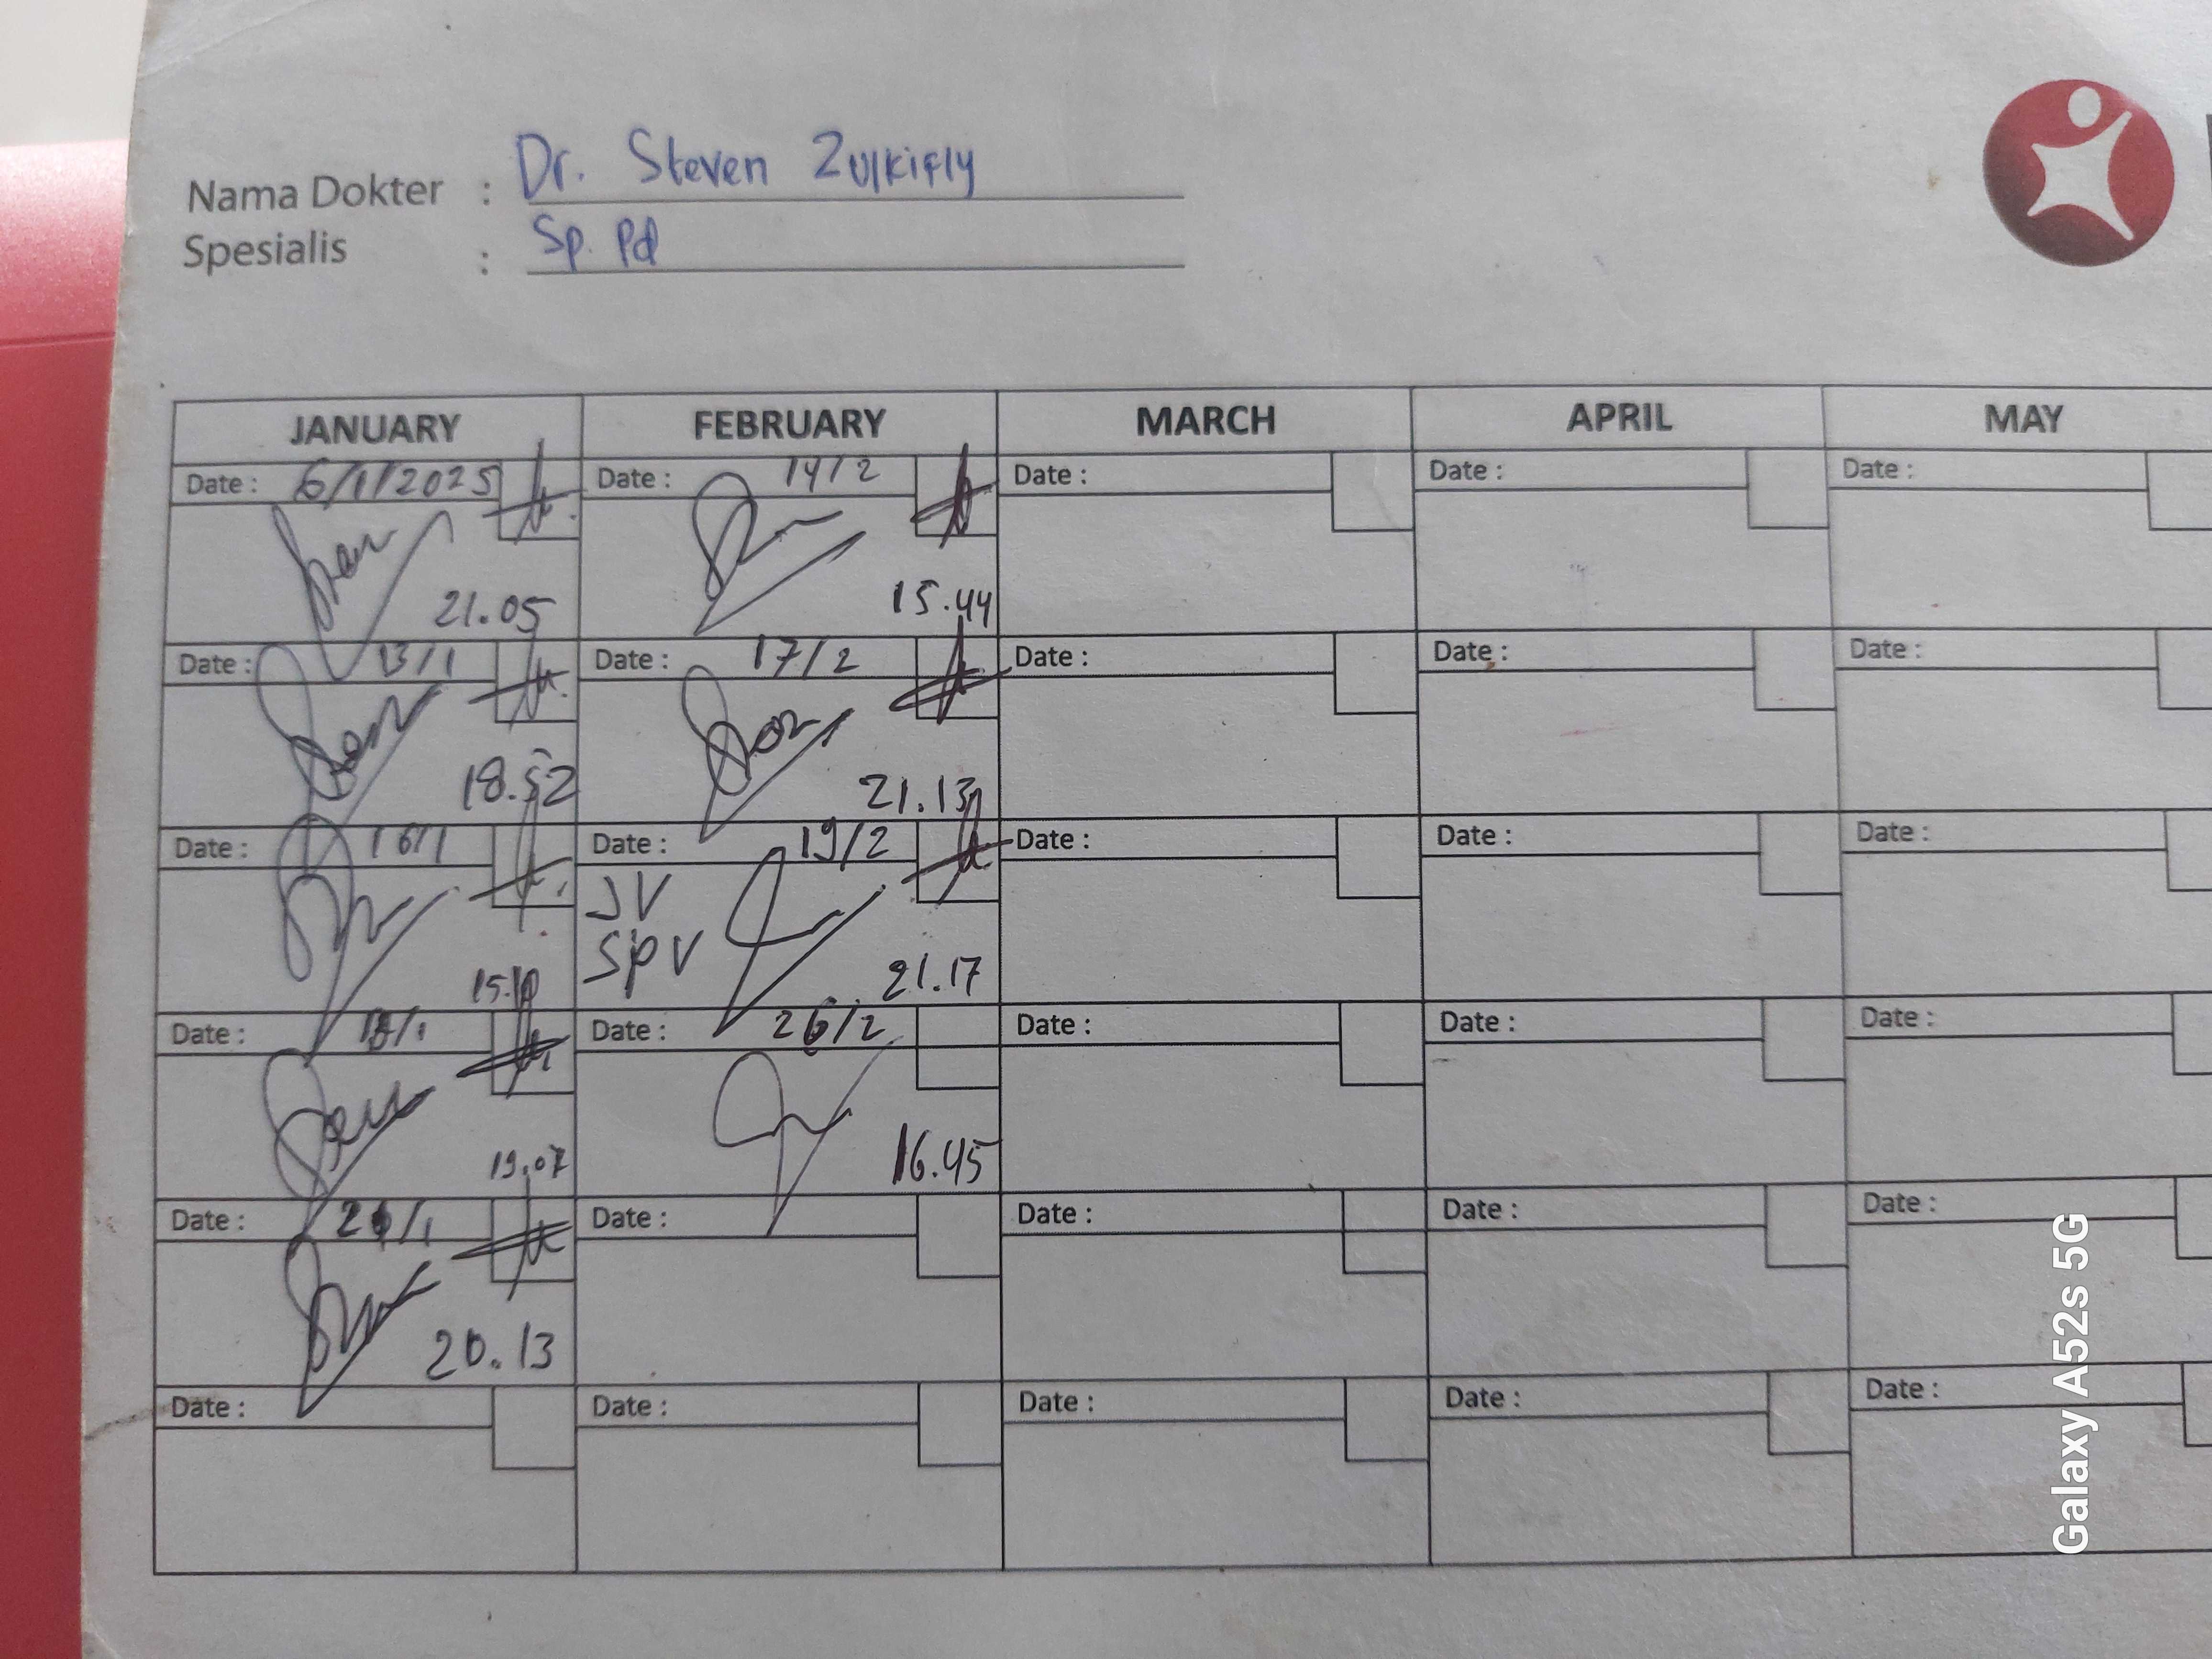 Nama Dokter : Dr. Steven Zulkifly
Spesialis : Sp. Pd
JANUARY FEBRUARY MARCH APRIL MAY
Date : 6/1/2025 Date : 14/2 Date : Date : Date :
21.05 15.44
Date : 13/1 Date : 17/2 Date : Date : Date :
18.52 21.13
Date : 16/1 Date : 19/2 Date : Date : Date :
JV
SPV
21.17
Date : Date : 26/2 Date : Date : Date :
19.07 16.45
Date : Date : Date : Date : Date :
20.13
Date : Date : Date : Date : Date :
Galaxy A52s 5G